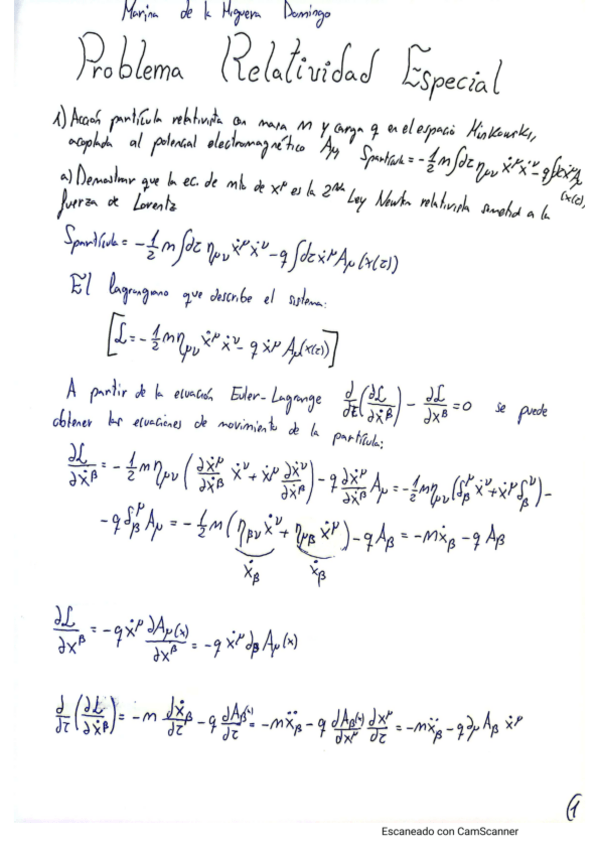 Marina de la Higuera Domingo
Problema Relatividad Especial
1) Acción partícula relativista con masa m y carga q en el espacio Minkowski,
acoplada al potencial electromagnético Aμ Spartícula = -1/2 m∫dτ ημν ẋ^μ ẋ^ν - q∫dτ ẋ^μ Aμ (x(τ)),
a) Demostrar que la ec. de mto de x^μ es la 2ª Ley Newton relativista sometida a la
fuerza de Lorentz
Spartícula = -1/2 m∫dτ ημν ẋ^μ ẋ^ν - q∫dτ ẋ^μ Aμ (x(τ))
El lagrangiano que describe el sistema:
[ℒ = -1/2 m ημν ẋ^μ ẋ^ν - q ẋ^μ Aμ(x(τ))]
A partir de la ecuación Euler-Lagrange d/dτ(∂ℒ/∂ẋ^β) - ∂ℒ/∂x^β = 0 se puede
obtener las ecuaciones de movimiento de la partícula:
∂ℒ/∂ẋ^β = -1/2 m ημν (∂ẋ^μ/∂ẋ^β ẋ^ν + ẋ^μ ∂ẋ^ν/∂ẋ^β) - q ∂ẋ^μ/∂ẋ^β Aμ = -1/2 m ημν (δ^μ_β ẋ^ν + ẋ^μ δ^ν_β) -
- q δ^μ_β Aμ = -1/2 m (ηβν ẋ^ν + ημβ ẋ^μ) - q Aβ = -m ẋβ - q Aβ
ẋβ ẋβ
∂ℒ/∂x^β = -q ẋ^μ ∂Aμ(x)/∂x^β = -q ẋ^μ ∂β Aμ(x)
d/dτ (∂ℒ/∂ẋ^β) = -m dẋβ/dτ - q dAβ(x)/dτ = -m ẍβ - q dAβ(x)/dx^μ dx^μ/dτ = -m ẍβ - q ∂μ Aβ ẋ^μ
1
Escaneado con CamScanner